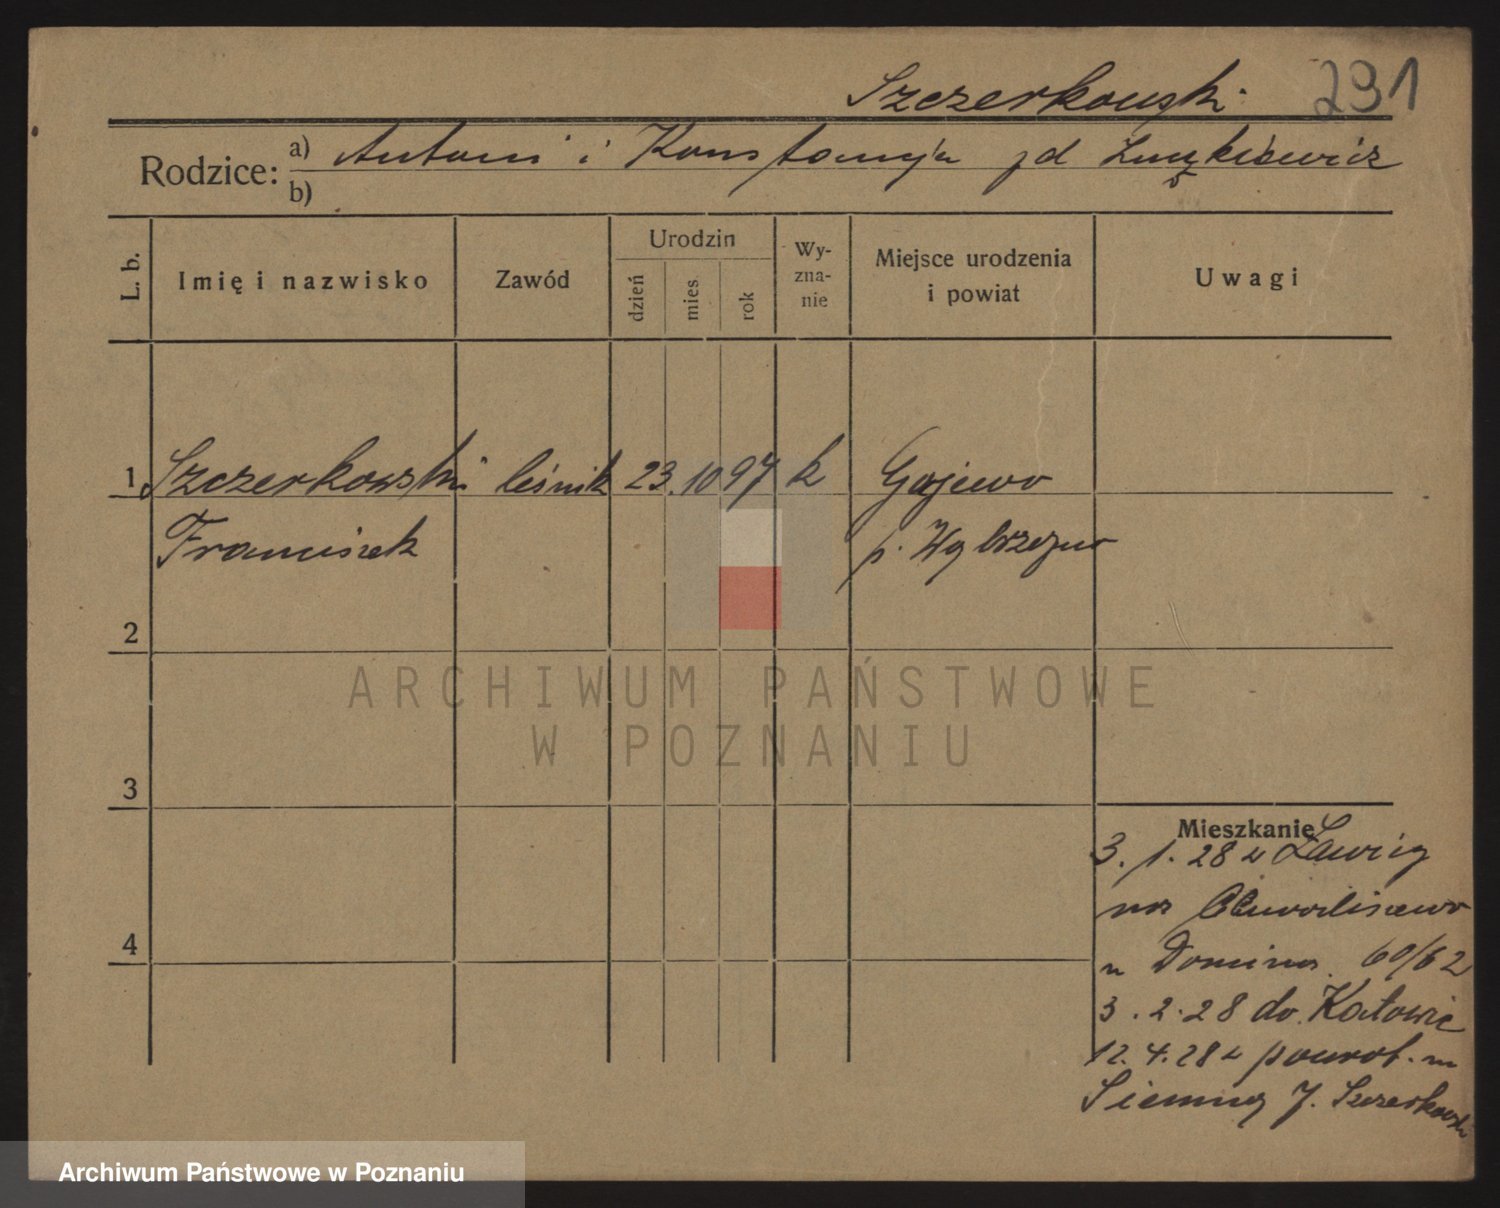 Szczerkowski. 291
Rodzice: a) Antoni i Konstancja zd
b)
L. b.
Imię i nazwisko
Zawód
Urodzin
dzień
mies.
rok
Wy-
zna-
nie
Miejsce urodzenia
i powiat
Uwagi
1 Szczerkowski leśnik 23. 10 97 k Gajewo
Franciszek p. Wąbrzeżno
2
ARCHIWUM PAŃSTWOWE
W POZNANIU
3
Mieszkanie
3. 1. 28 z
na
u Domina. 60/62
3. 2. 28 do Katowic
12. 4. 28 z powrot.
J. Szczerkowski
4
Archiwum Państwowe w Poznaniu